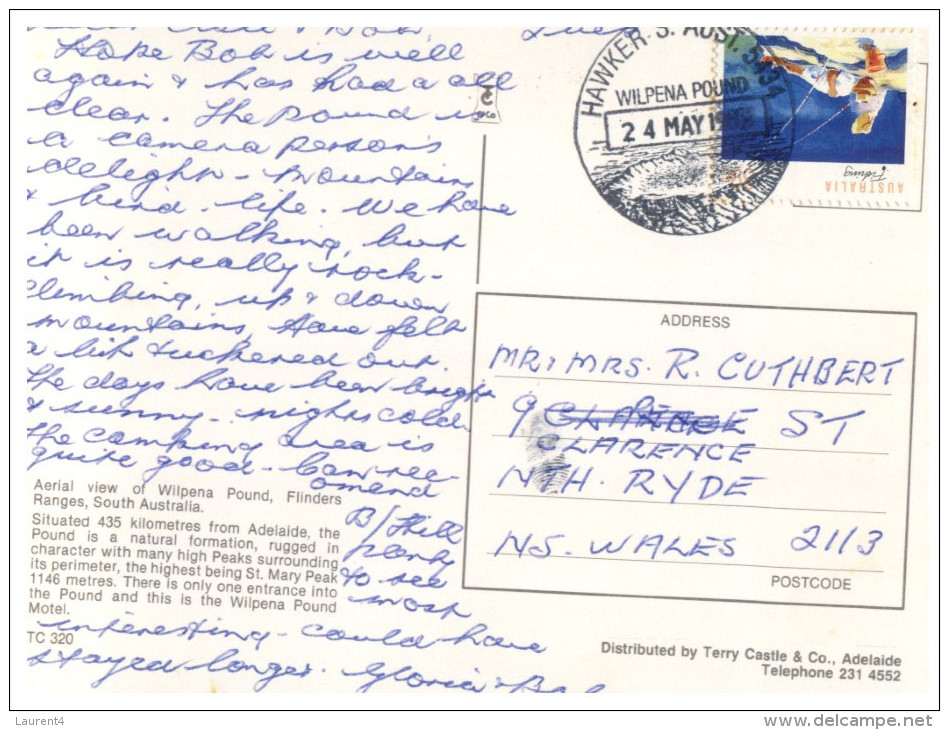 & Bob.
Hope Bob is well
again & has had a all
clear. The Pound is
a camera persons
delight - mountain
& bird - life. We have
been walking, but
it is really rock-
climbing, up & down
mountains, have felt
a bit tuckered out.
The days have been bright
& sunny - nights cold.
The camping area is
quite good - Can rec-
omend
B/Hill
plenty
to see
most
interesting - could have
stayed longer. Gloria & Bob
Aerial view of Wilpena Pound, Flinders
Ranges, South Australia.
Situated 435 kilometres from Adelaide, the
Pound is a natural formation, rugged in
character with many high Peaks surrounding
its perimeter, the highest being St. Mary Peak
1146 metres. There is only one entrance into
the Pound and this is the Wilpena Pound
Motel.
TC 320
HAWKER S. AUST. 5434
WILPENA POUND
24 MAY
AUSTRALIA
Fishing
ADDRESS
MR & MRS. R. CUTHBERT
9 ST
CLARENCE
NTH. RYDE
N.S. WALES 2113
POSTCODE
Distributed by Terry Castle & Co., Adelaide
Telephone 231 4552
Laurent4
www.delcampe.net